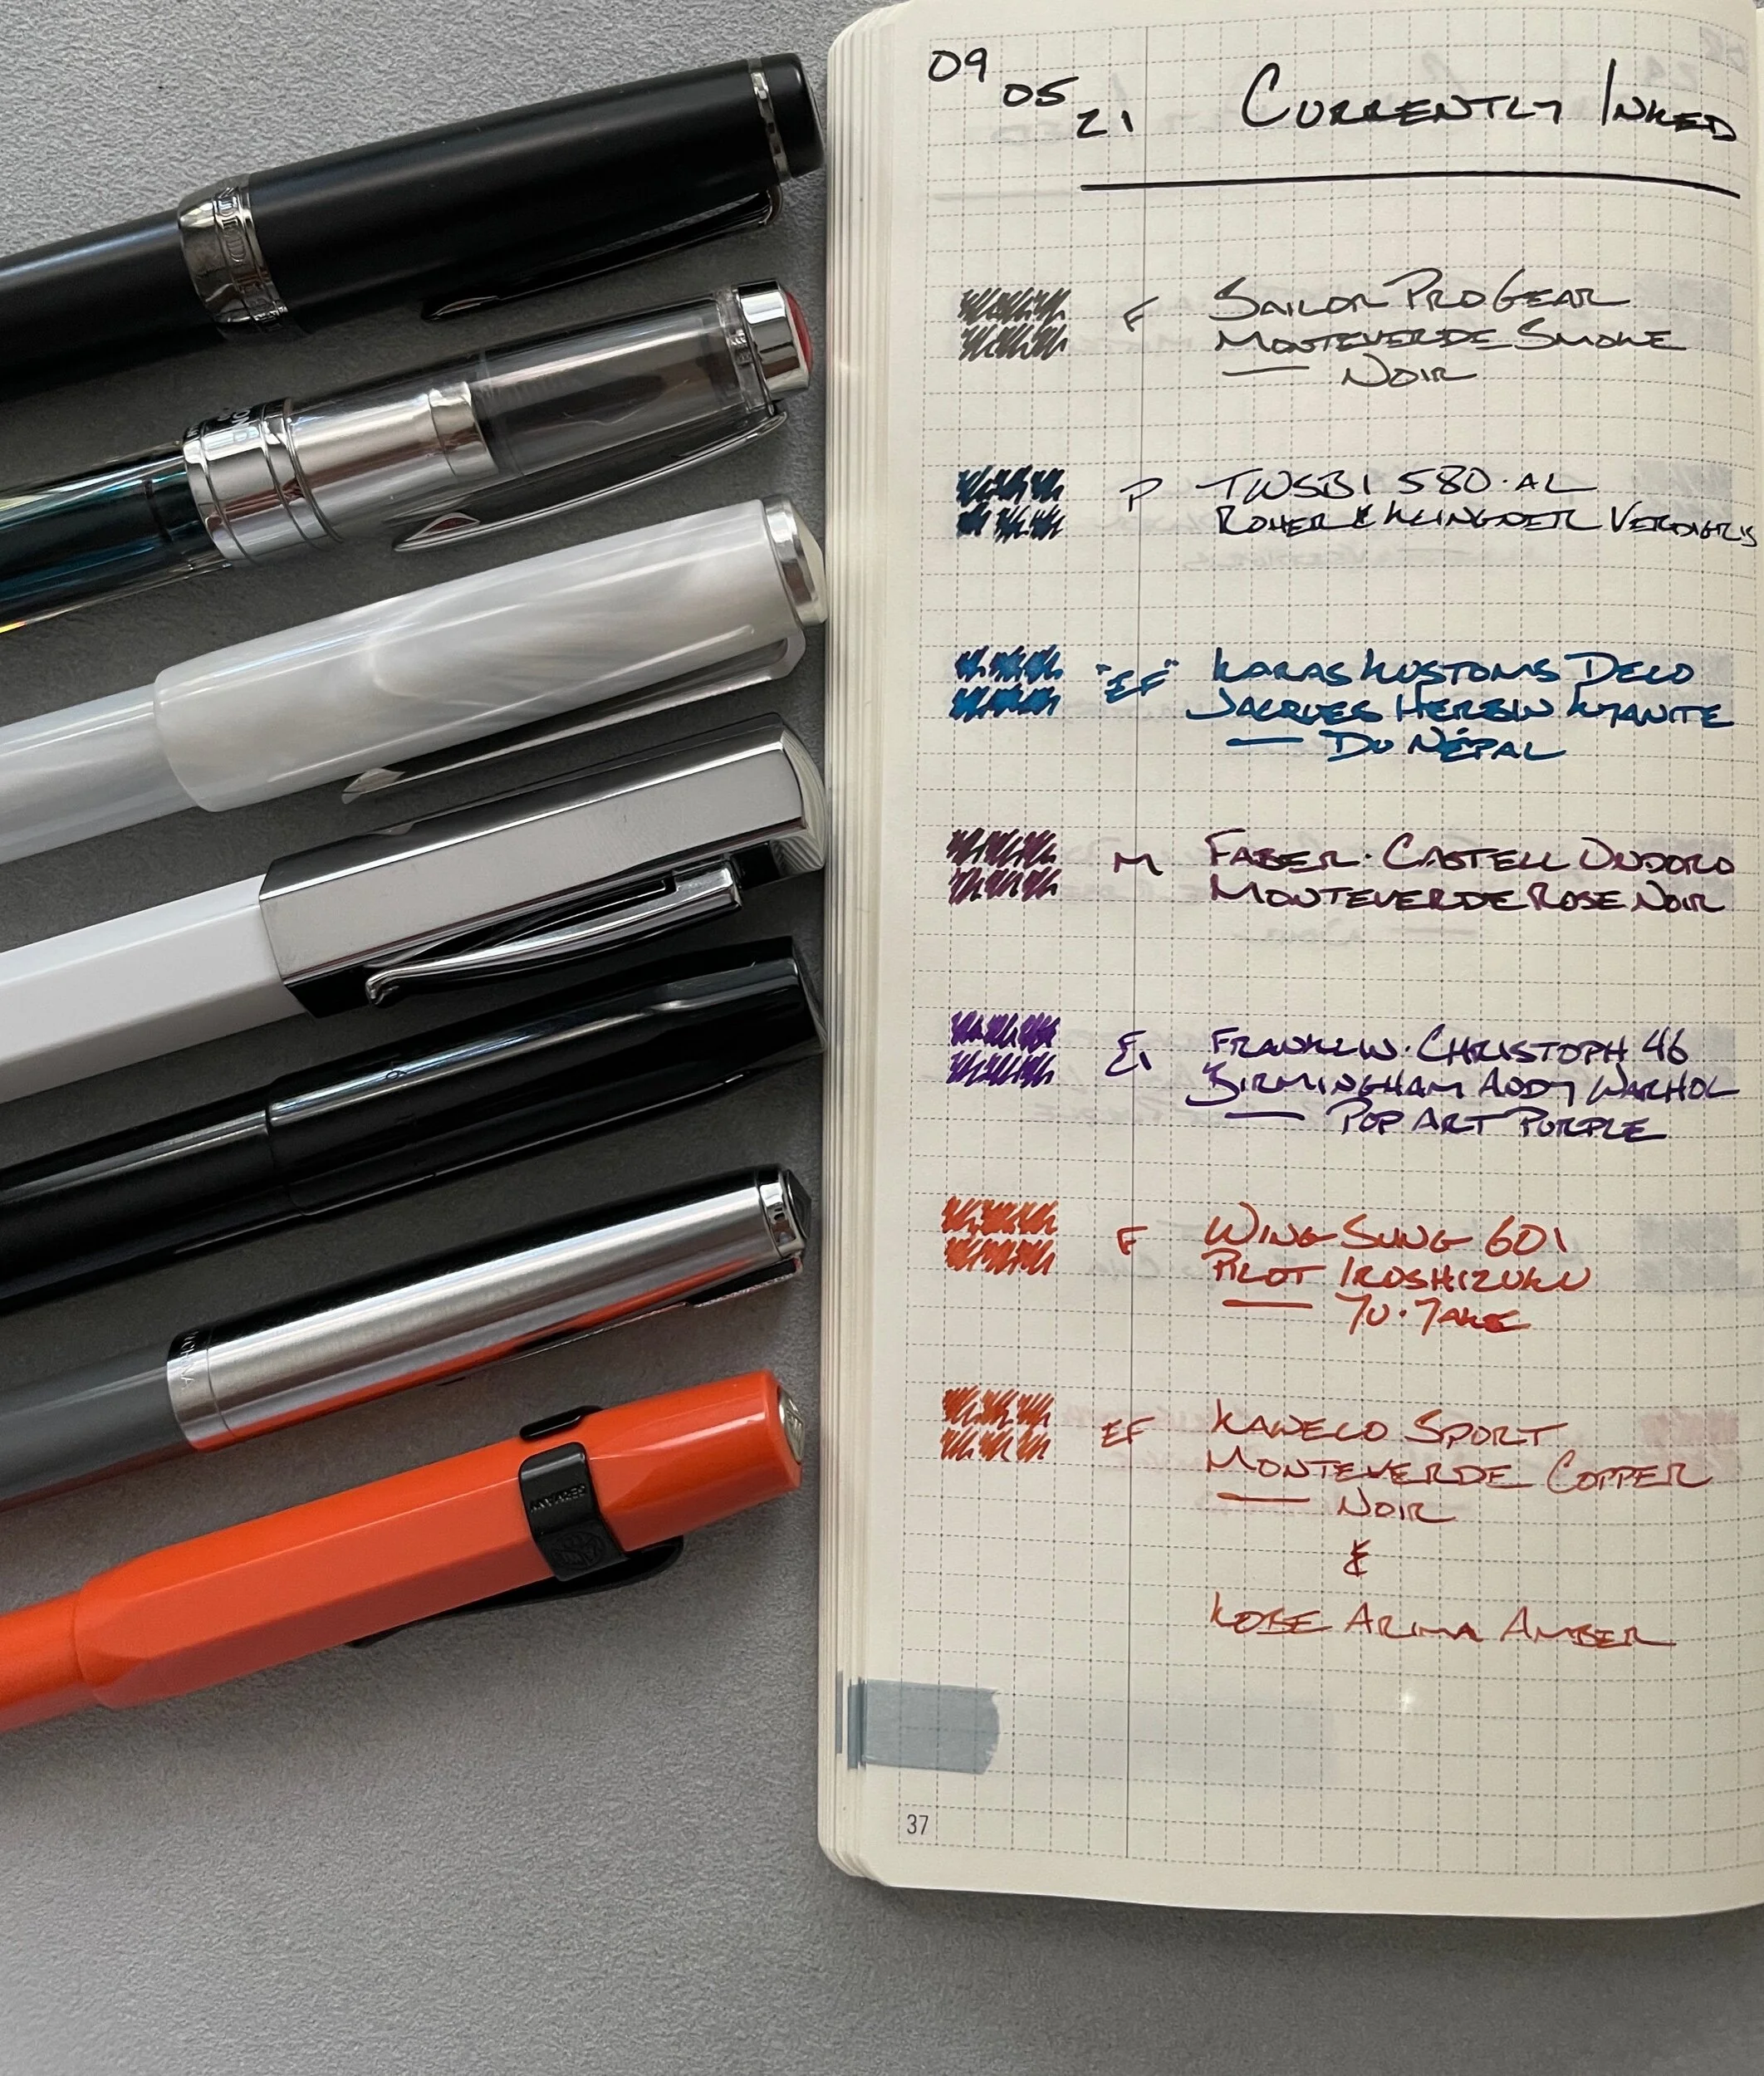 09
05
21
Currently Inked
F Sailor Pro Gear
Monteverde Smoke
— Noir
TWSBI 580·AL
Roher & Klingner Verdigris
"EF" Karas Kustoms Deco
Jacques Herbin Kyanite
— Du Népal
M Faber·Castell Ondoro
Monteverde Rose Noir
Franklin·Christoph 46
Birmingham Andy Warhol
— Pop Art Purple
F Wing Sung 601
Pilot Iroshizuku
— Yu·Yake
EF Kaweco Sport
Monteverde Copper
— Noir
&
Kobe Arima Amber
37
GERMANY